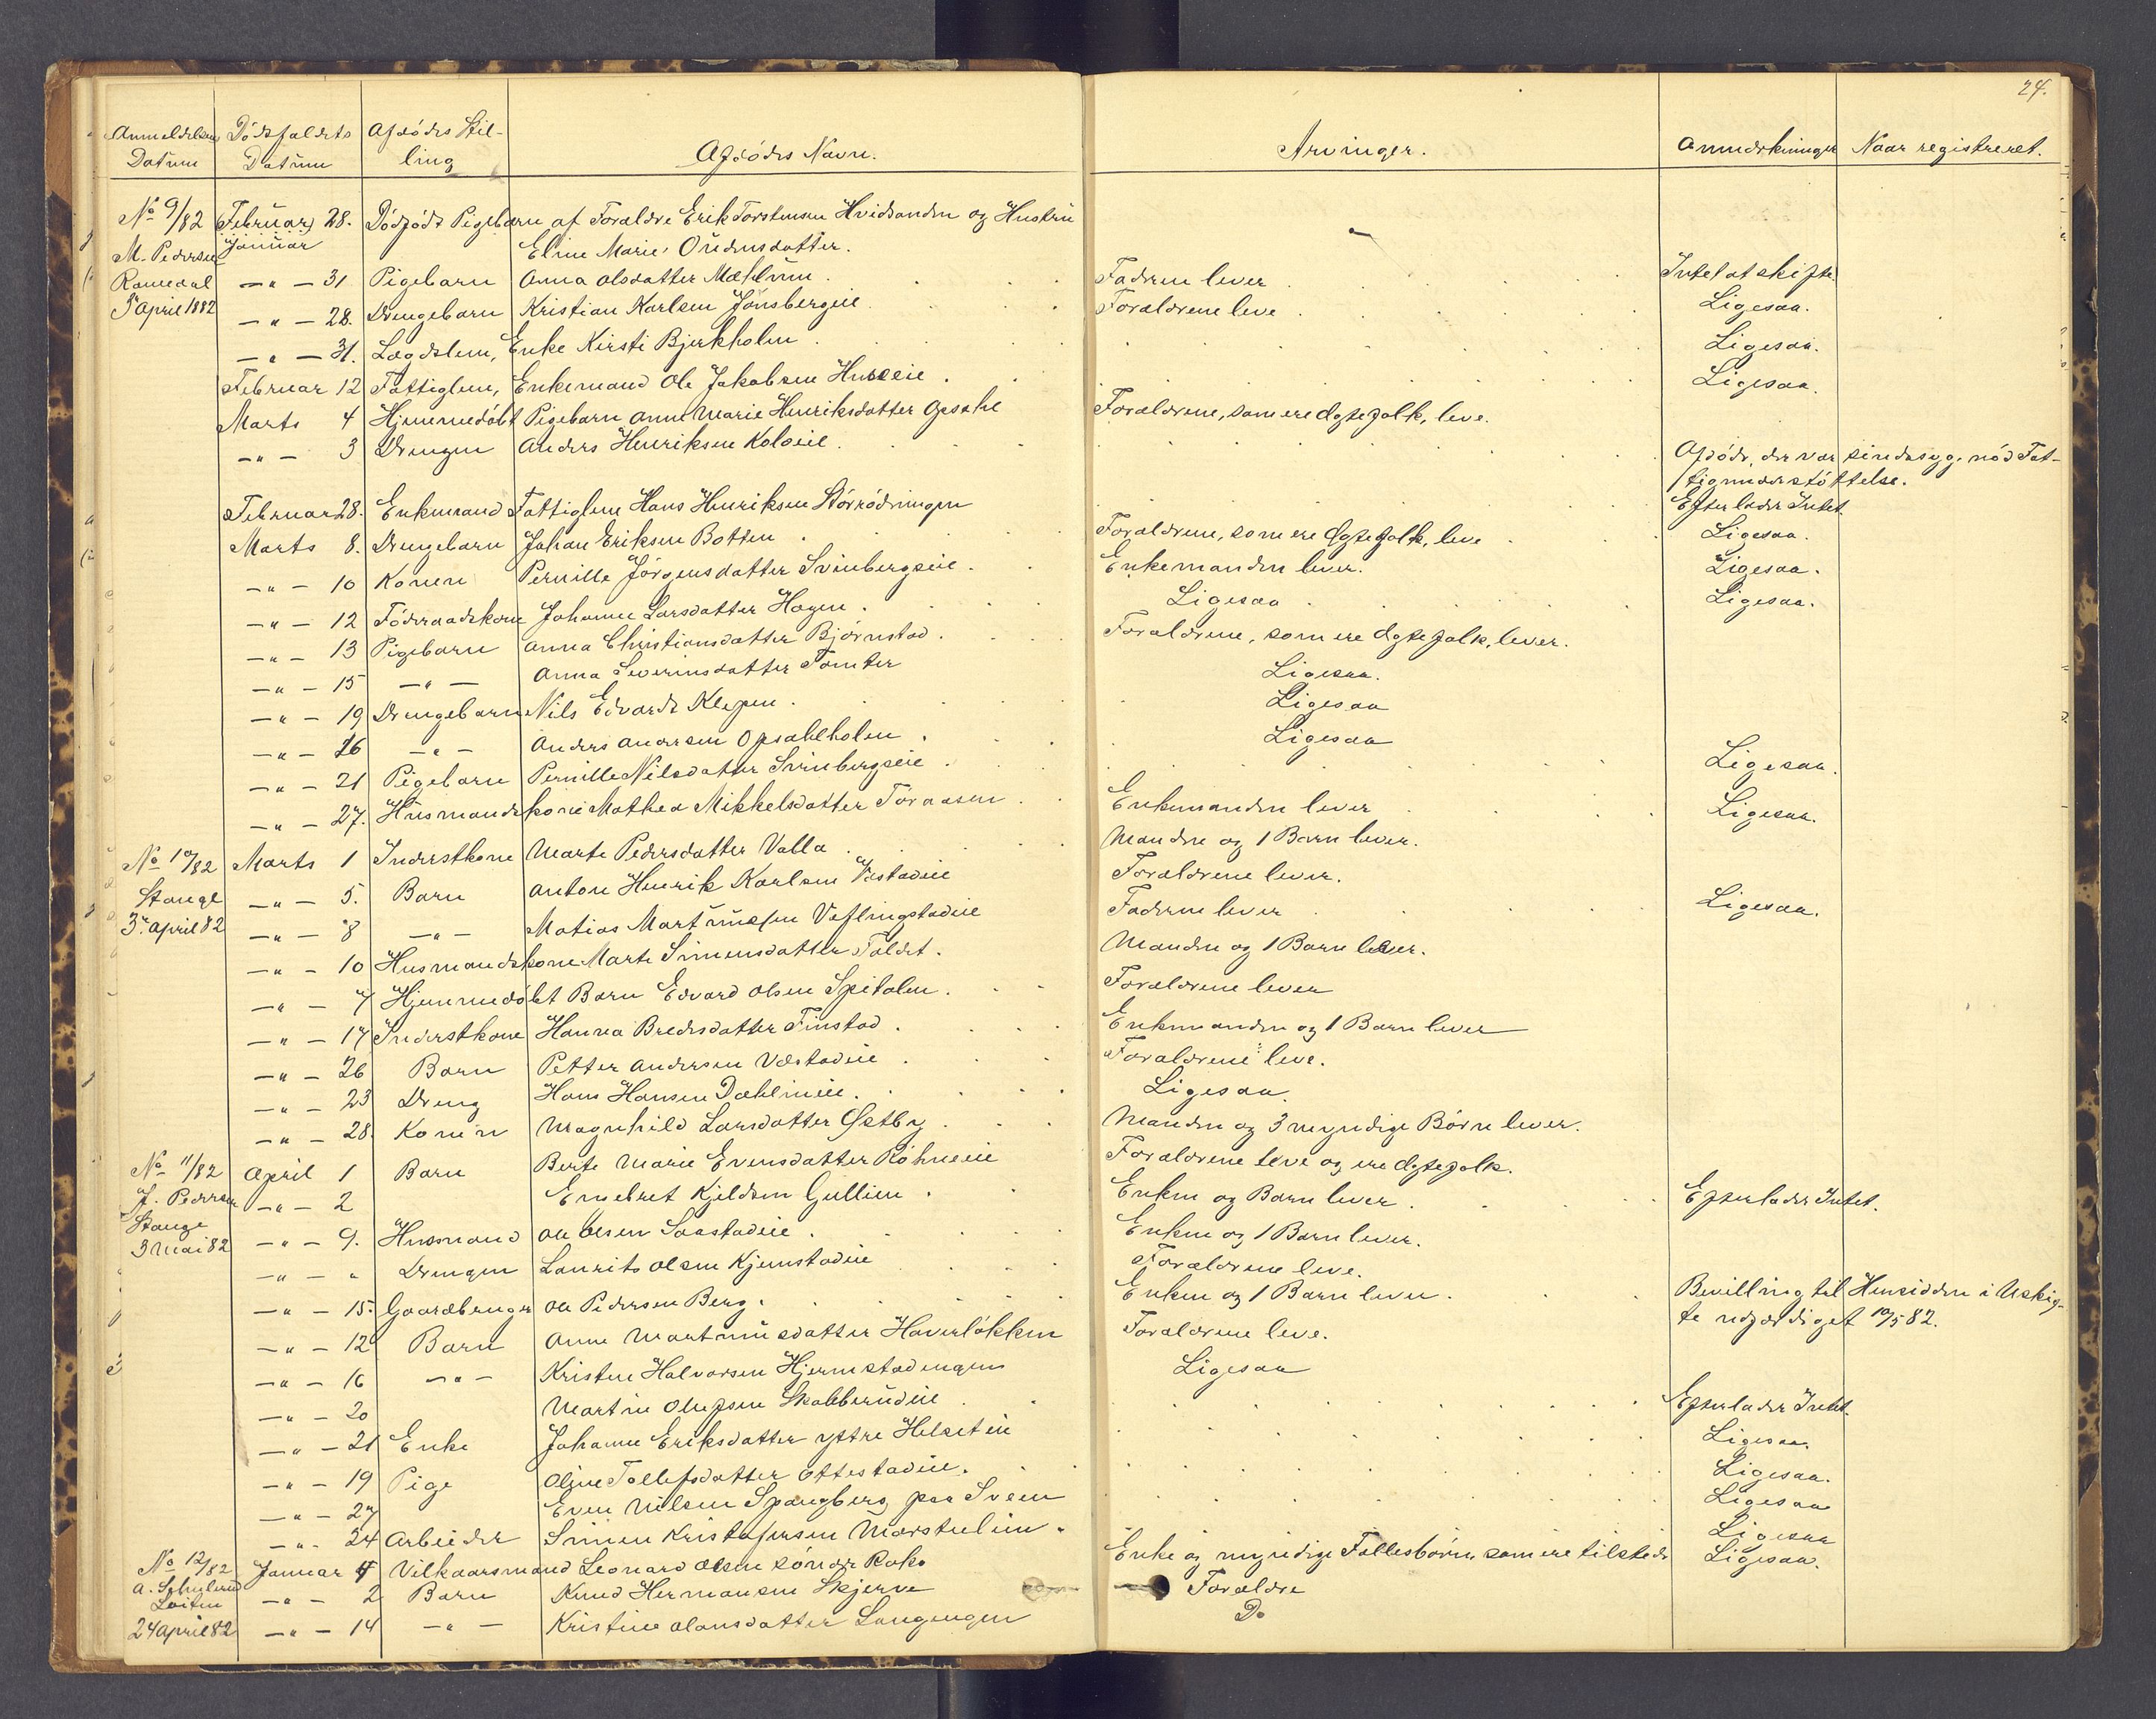 24.
Anmeldelsens Datum Dödsfaldets Datum Afdödes Stilling Afdödes Navn. Arvinger. Anmærkninger Naar registreret.
No 9/82 Februar 28. Dödfödt Pigebarn af Forældre Erik Torstensen Hvidsanden og Hustru
M. Pedersen Januar Eline Marie Oudensdatter.
Romedal —"— 31 Pigebarn Anna Olsdatter Mæhlum. Faderen lever Intet at skifte
3 April 1882 —"— 28. Drengebarn Kristian Karlsen Jönsbergeie. Forældrene leve Ligesaa.
—"— 31. Lægdslem, Enke Kirsti Bjerkholen Ligesaa.
Februar 12 Fattiglem, Enkemand Ole Jakobsen Huseeie Ligesaa.
Marts 4 Hjemmedöbt Pigebarn Anne Marie Henriksdatter Opsahl Forældrene, som ere Ægtefolk, leve.
—"— 3 Drengen Anders Henriksen Koloeie. Afdöde, der var sindssyg, nöd Fat-
tigunderstöttelse.
Februar 28. Enkemand Fattiglem Hans Henriksen Störrödningen Efterlader Intet.
Marts 8. Drengebarn Johan Eriksen Botten Forældrene, som ere Ægtefolk, leve Ligesaa.
—"— 10 Konen Pernille Jörgensdatter Svinbergseie. Enkemanden lever. Ligesaa.
—"— 12 Föderaadskone Johanne Larsdatter Hagen. Ligesaa Ligesaa.
—"— 13 Pigebarn Anna Christiansdatter Bjørnstad. Forældrene, som ere Ægtefolk, lever.
—"— 15 —"— Anna Severinsdatter Tomter Ligesaa.
—"— 19 Drengebarn Nils Edvards Klepen. Ligesaa
—"— 26 —"— Anders Andersen Opsahlholen. Ligesaa
—"— 21 Pigebarn Pernille Nilsdatter Svinbergseie Ligesaa.
—"— 27. Husmandskone Mathea Mikkelsdatter Toraasen Enkemanden lever Ligesaa.
No 10/82 Marts 1 Inderstkone Marte Pedersdatter Valla Manden og 1 Barn lever.
Stange —"— 5. Barn Anton Henrik Karlsen Væstadeie Forældrene lever.
3. April 82 —"— 8 —"— Matias Martinusen Veflingstadeie Faderen lever Ligesaa.
—"— 10 Husmandskone Marte Simensdatter Foldet. Manden og 1 Barn lever.
—"— 7 Hjemmedöbt Barn Edvard Olsen Spitalen. Forældrene lever
—"— 17 Inderstkone Hanna Bredesdatter Finstad. Enkemanden og 1 Barn lever
—"— 26 Barn Petter Andersen Væstadeie Forældrene leve.
—"— 23 Dreng Hans Hansen Dæhlineie. Ligesaa.
—"— 28. Konen Magnhild Larsdatter Østby Manden og 3 myndige Börn lever.
No 11/82 April 1 Barn Berte Marie Evensdatter Röhneeie Forældrene leve og ere Ægtefolk.
J. Pedersen —"— 2 Engebret Kjeldsen Gullien. Enken og Barn lever Efterlader Intet.
Stange —"— 9. Husmand Ole Olsen Saastadeie. Enken og 1 Barn lever.
3 Mai 82 —"— " Drengen Laurits Olsen Kjemstadeie Forældrene leve.
—"— 15. Gaardbruger Ole Pedersen Berg. Enken og 1 Barn lever. Bevilling til Hensidden i Uskif-
te udfærdiget 10/5 82.
—"— 12 Barn Anne Martinusdatter Haverlökken Forældrene leve.
—"— 16 —"— Kristen Halvorsen Hjermstadengen Ligesaa
—"— 20 Martin Olufsen Skabberudeie Efterlader Intet.
—"— 21 Enke Johanne Eriksdatter yttre Helseteie Ligesaa.
—"— 19 Pige Oline Tollefsdatter Ottestadeie. Ligesaa.
—"— 27 Even Nilsen Spangberg paa Sveen Ligesaa
—"— 24 Arbeider Simen Kristofersen Morstueien. Ligesaa
No 12/82 Januar 4 Vilkaarsmand Leonard Olsen söndre Roko Enke og myndige Fællesbörn, som ere tilstede Ligesaa.
Löiten —"— 2 Barn Knud Hermansen Skjerve Forældre
24 April 82 —"— 14 —"— Kristine Olausdatter Langengen Do